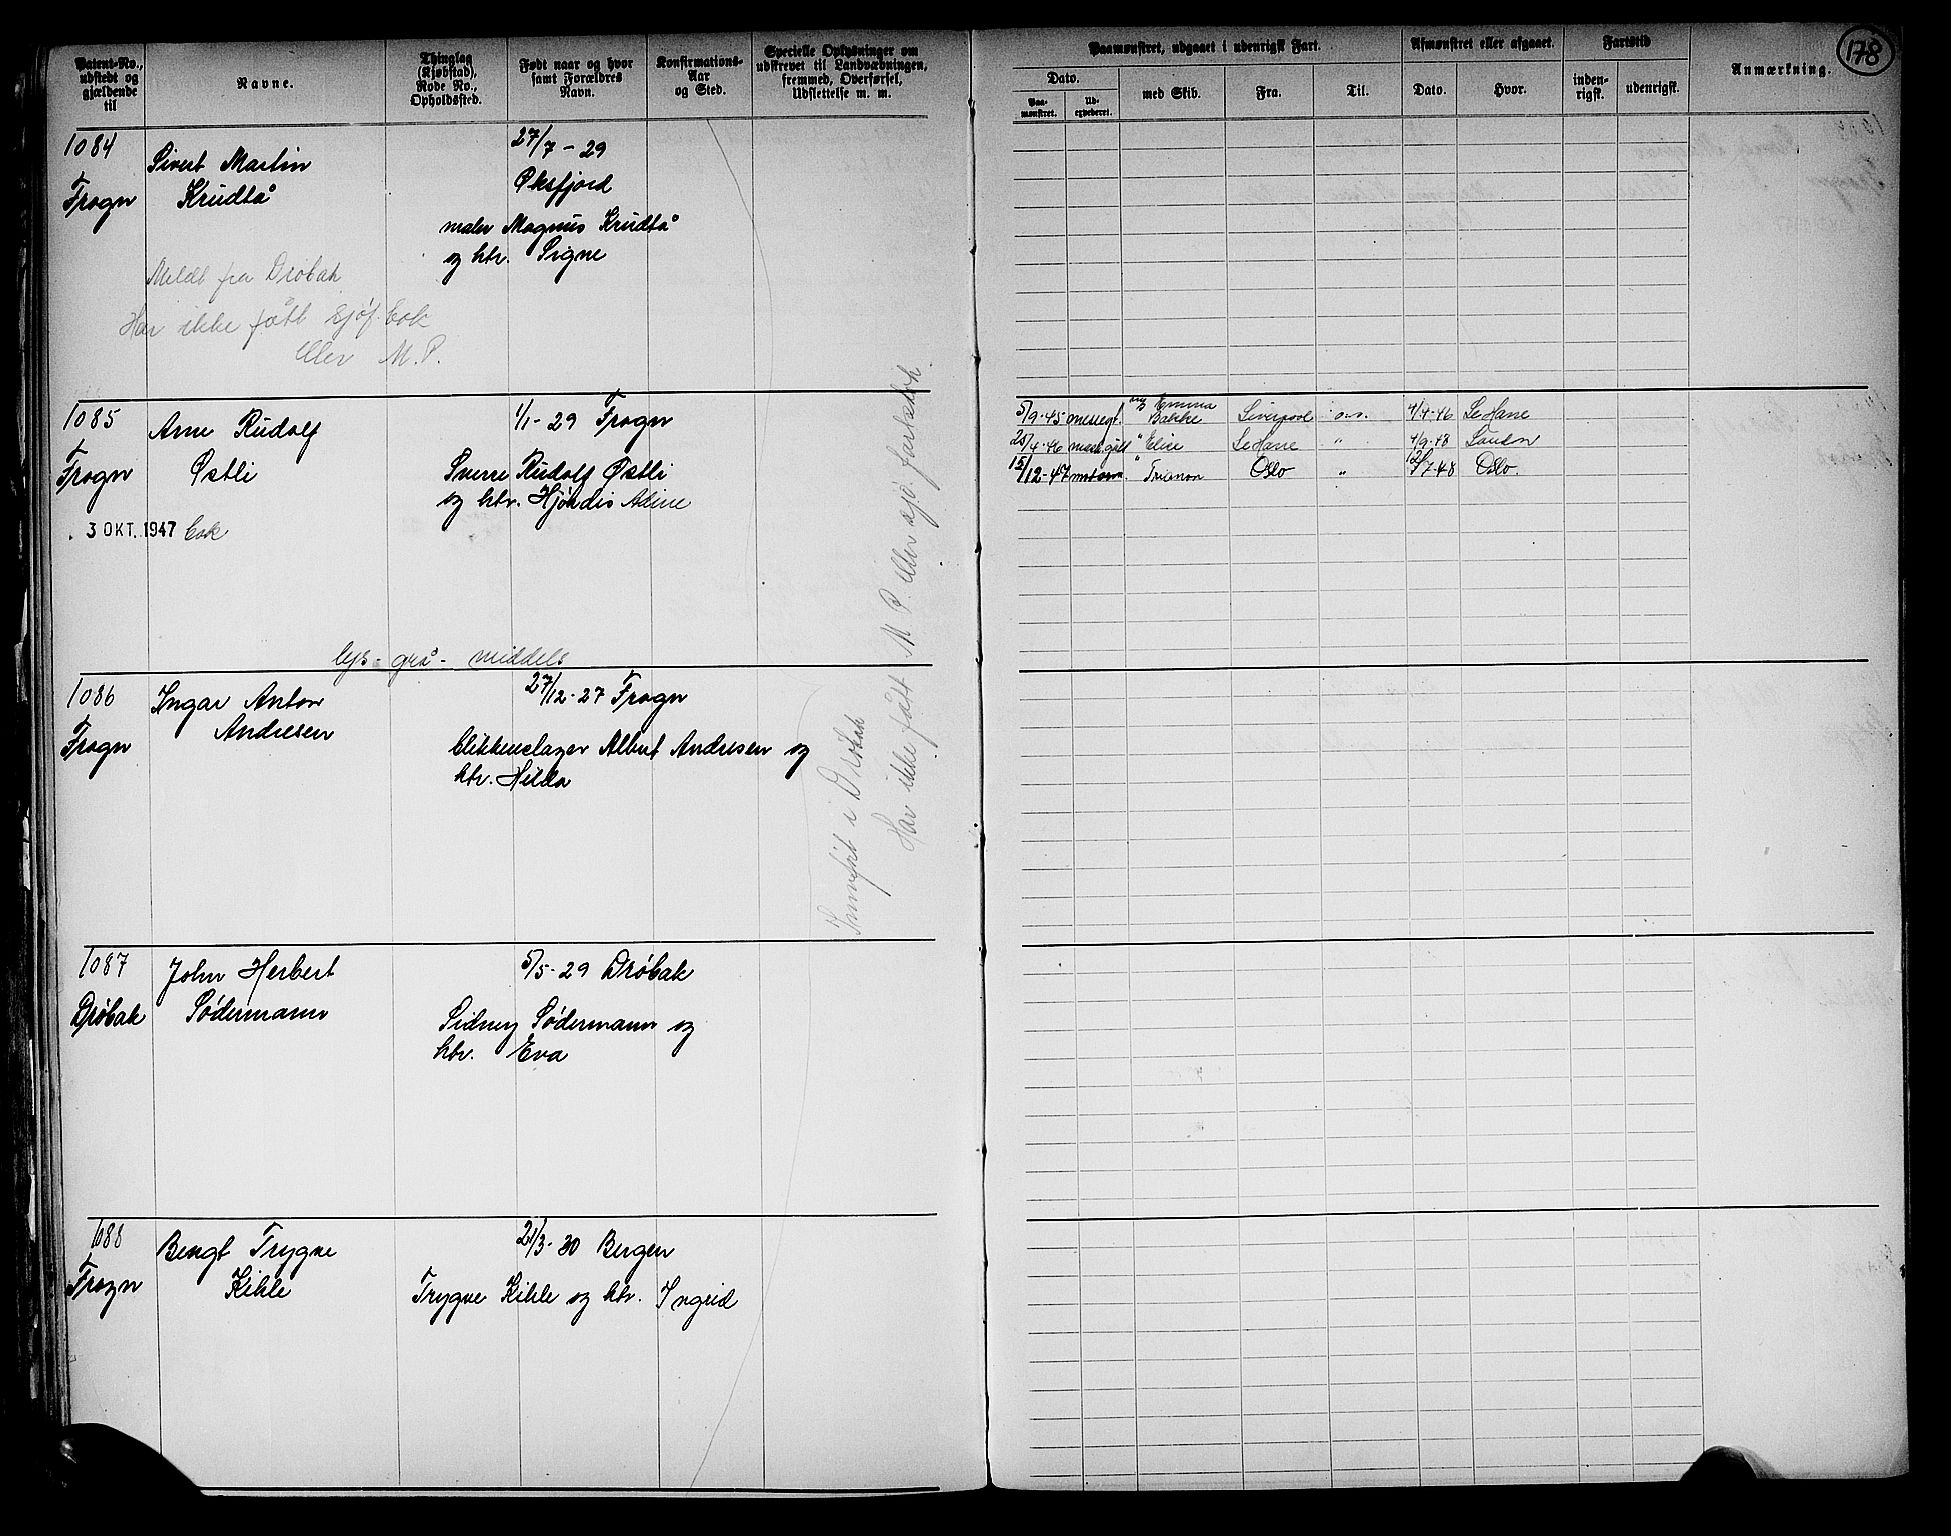 Patent-No., udstedt og gjældende til
Navne.
Thinglag (Kjøbstad), Rode No., Opholdssted.
Født naar og hvor samt Forældres Navn.
Konfirmations-Aar og Sted.
Specielle Oplysninger om udskrevet til Landværdningen, fremmed, Overførsel, Udslettelse m. m.
Paamønstret, udgaaet i udenrigsk Fart.
Dato.
Paa-mønstret.
Ud-expederet.
med Skib.
Fra.
Til.
Afmønstret eller afgaaet.
Dato.
Hvor.
Fartstid
inden-rigsk.
udenrigsk.
Anmærkning.
178
1084
Sivert Martin
27/7 - 29
Frogn
Krudtå
Øksfjord
maler Magnus Krudtå
og htr. Signe
Meldt fra Drøbak
Har ikke fått sjøf. bok
eller M. P.
1085
Arne Rudolf
1/1 - 29 Frogn
Frogn
Østli
Sverre Rudolf Østli
og htr. Hjørdis Aline
3 OKT. 1947 bok
5/9-45 messegt. Emma Bakke Liverpool o.s. 4/4-46 Le Havre
25/4-46 " Elise Le Havre " 4/9-48 London
15/12-47 " Trianon Oslo " 12/7-48 Oslo.
lys - grå - middels
1086
Ingar Anton
27/12 - 27 Frogn
Frogn
Andresen
blikkenslager Albert Andresen og
htr. Hilda
i Drøbak
Har ikke fått M. P. eller sjø.
1087
John Herbert
5/5 - 29 Drøbak
Drøbak
Södermann
Sidney Södermann og
htr. Eva
1088
Bengt Trygve
21/3 - 30 Bergen
Frogn
Kihle
Trygve Kihle og htr. Ingrid